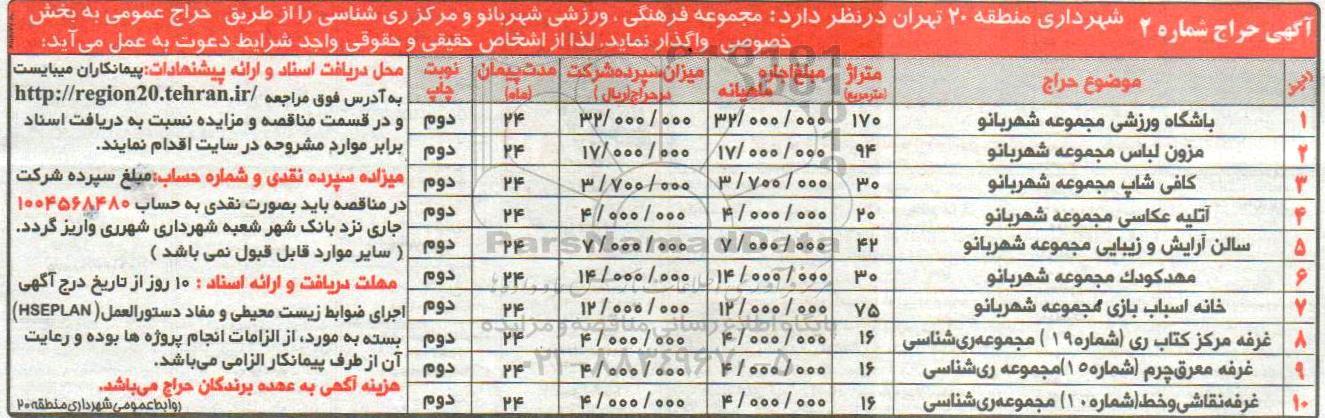 آگهی حراج شماره ۲
شهرداری منطقه ۲۰ تهران درنظر دارد: مجموعه فرهنگی، ورزشی شهربانو و مرکز ری شناسی را از طریق حراج عمومی به بخش
خصوصی واگذار نماید. لذا از اشخاص حقیقی و حقوقی واجد شرایط دعوت به عمل می‌آید:
ردیف موضوع حراج متراژ (مترمربع) مبلغ اجاره ماهیانه میزان سپرده شرکت در حراج (ریال) مدت پیمان (ماه) نوبت چاپ
۱ باشگاه ورزشی مجموعه شهربانو ۱۷۰ ۳۲/۰۰۰/۰۰۰ ۳۲/۰۰۰/۰۰۰ ۲۴ دوم
۲ مزون لباس مجموعه شهربانو ۹۴ ۱۷/۰۰۰/۰۰۰ ۱۷/۰۰۰/۰۰۰ ۲۴ دوم
۳ کافی شاپ مجموعه شهربانو ۳۰ ۳/۷۰۰/۰۰۰ ۳/۷۰۰/۰۰۰ ۲۴ دوم
۴ آتلیه عکاسی مجموعه شهربانو ۲۰ ۴/۰۰۰/۰۰۰ ۴/۰۰۰/۰۰۰ ۲۴ دوم
۵ سالن آرایش و زیبایی مجموعه شهربانو ۴۲ ۷/۰۰۰/۰۰۰ ۷/۰۰۰/۰۰۰ ۲۴ دوم
۶ مهدکودک مجموعه شهربانو ۳۰ ۱۴/۰۰۰/۰۰۰ ۱۴/۰۰۰/۰۰۰ ۲۴ دوم
۷ خانه اسباب بازی مجموعه شهربانو ۷۵ ۱۲/۰۰۰/۰۰۰ ۱۲/۰۰۰/۰۰۰ ۲۴ دوم
۸ غرفه مرکز کتاب ری (شماره ۱۹) مجموعه ری‌شناسی ۱۶ ۴/۰۰۰/۰۰۰ ۴/۰۰۰/۰۰۰ ۲۴ دوم
۹ غرفه معرق چرم (شماره ۱۵) مجموعه ری‌شناسی ۱۶ ۴/۰۰۰/۰۰۰ ۴/۰۰۰/۰۰۰ ۲۴ دوم
۱۰ غرفه نقاشی و خط (شماره ۱۰) مجموعه ری‌شناسی ۱۶ ۴/۰۰۰/۰۰۰ ۴/۰۰۰/۰۰۰ ۲۴ دوم
محل دریافت اسناد و ارائه پیشنهادات: پیمانکاران میبایست
به آدرس فوق مراجعه http://region20.tehran.ir/
و در قسمت مناقصه و مزایده نسبت به دریافت اسناد
برابر موارد مشروحه در سایت اقدام نمایند.
میزاده سپرده نقدی و شماره حساب: مبلغ سپرده شرکت
در مناقصه باید بصورت نقدی به حساب ۱۰۰۴۵۶۸۴۸۰
جاری نزد بانک شهر شعبه شهرداری شهرری واریز گردد.
( سایر موارد قابل قبول نمی باشد )
مهلت دریافت و ارائه اسناد : ۱۰ روز از تاریخ درج آگهی
اجرای ضوابط زیست محیطی و مفاد دستورالعمل (HSEPLAN)
بسته به مورد، از الزامات انجام پروژه ها بوده و رعایت
آن از طرف پیمانکار الزامی می‌باشد.
هزینه آگهی به عهده برندگان حراج می‌باشد.
روابط عمومی شهرداری منطقه ۲۰
ParsNamadData
پایگاه اطلاع رسانی مناقصه و مزایده